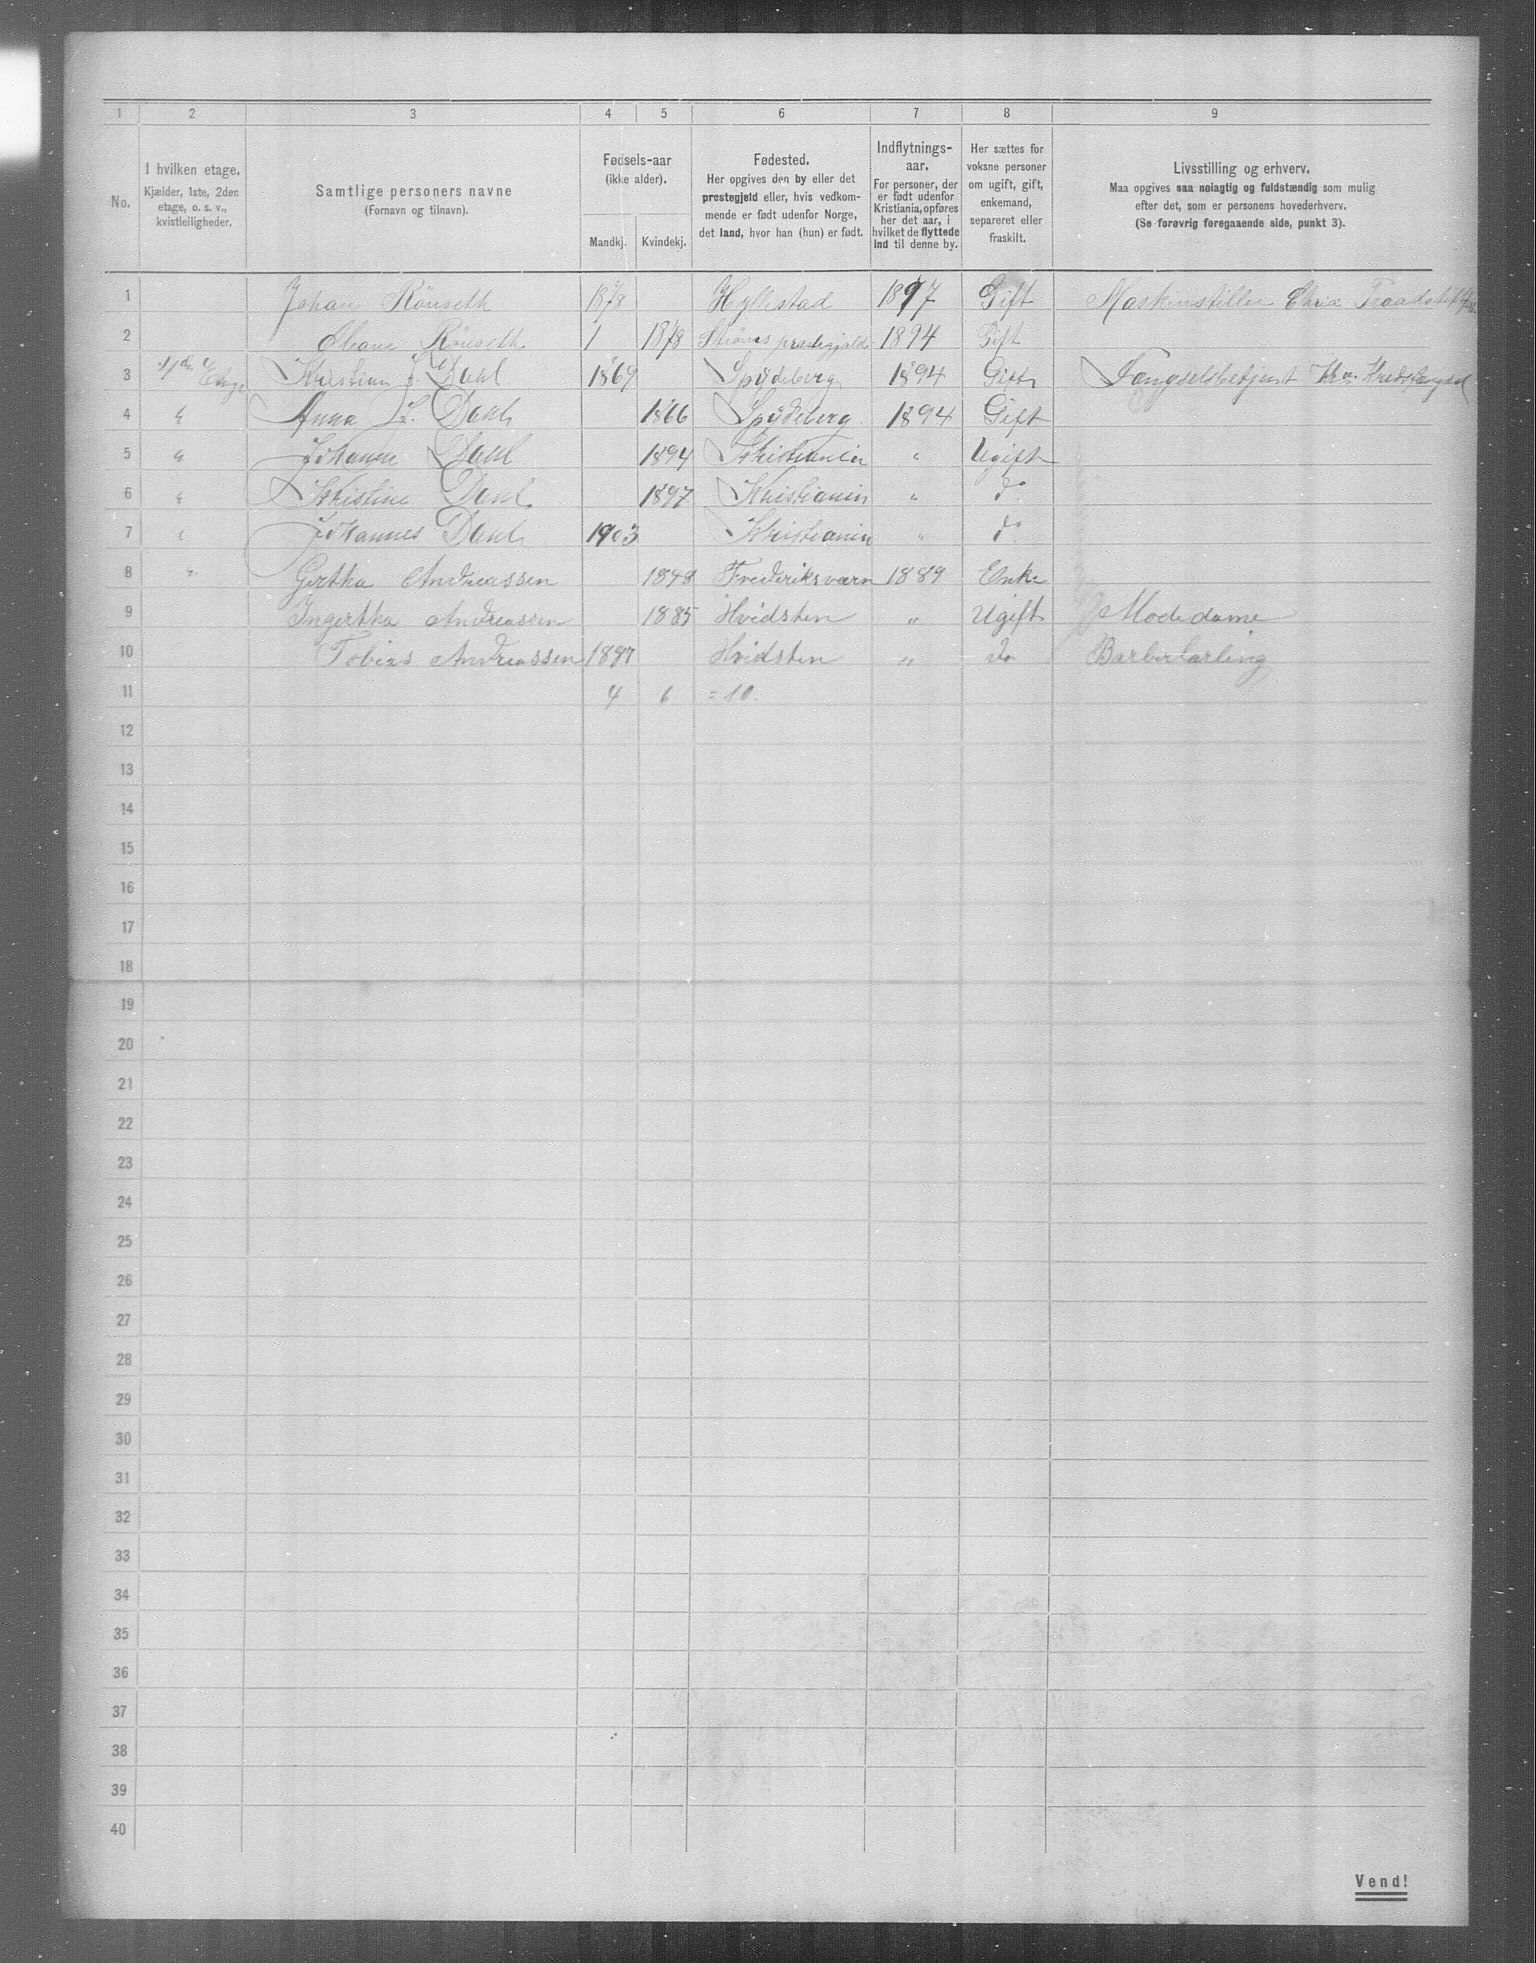 1 2 3 4 5 6 7 8 9
No.
I hvilken etage.
Kjælder, 1ste, 2den
etage, o. s. v.,
kvistleiligheder.
Samtlige personers navne
(Fornavn og tilnavn).
Fødsels-aar
(ikke alder).
Mandkj. Kvindekj.
Fødested.
Her opgives den by eller det
prestegjeld eller, hvis vedkom-
mende er født udenfor Norge,
det land, hvor han (hun) er født.
Indflytnings-
aar.
For personer, der
er født udenfor
Kristiania, opføres
her det aar, i
hvilket de flyttede
ind til denne by.
Her sættes for
voksne personer
om ugift, gift,
enkemand,
separeret eller
fraskilt.
Livsstilling og erhverv.
Maa opgives saa nøiagtig og fuldstændig som mulig
efter det, som er personens hovederhverv.
(Se forøvrig foregaaende side, punkt 3).
1 Johan Rönseth 1878 Hyllestad 1897 Gift Maskinstiller Chria
2 Oliane Rönseth 1 1878 prestegjeld 1894 Gift
3 Etage Kristian J. Dahl 1869 Spydeberg 1894 Gift Fængselsbetjent
4 " Anna J. Dahl 1866 Spydeberg 1894 Gift
5 " Johanne Dahl 1894 Kristiania " Ugift
6 " Kristine Dahl 1897 Kristiania " do
7 " Johannes Dahl 1903 Kristiania " do
8 " Gertha Andreassen 1848 Frederiksværn 1889 Enke
9 Ingertha Andreassen 1885 Hvidsten " Ugift Modedame
10 Tobias Andreassen 1887 Hvidsten " do Barberlærling
11 4 6 = 10.
12
13
14
15
16
17
18
19
20
21
22
23
24
25
26
27
28
29
30
31
32
33
34
35
36
37
38
39
40
Vend!